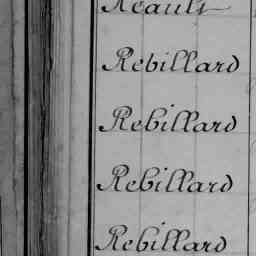 Réault
Rebillard
Rebillard
Rebillard
Rebillard